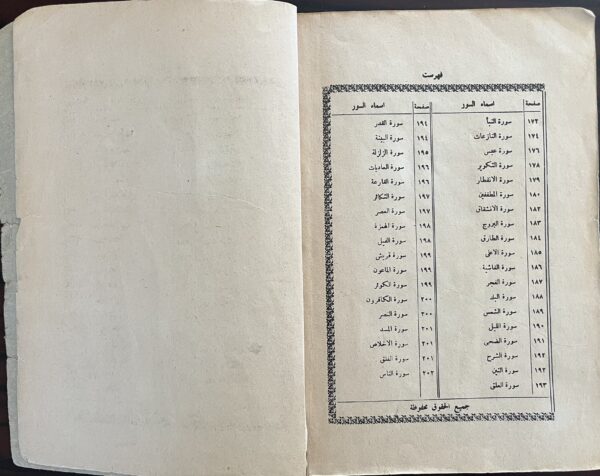 فهرست
صفحة اسماء السور
١٧٢ سورة النبأ
١٧٤ سورة النازعات
١٧٦ سورة عبس
١٧٨ سورة التكوير
١٧٩ سورة الانفطار
١٨٠ سورة المطففين
١٨٢ سورة الانشقاق
١٨٣ سورة البروج
١٨٤ سورة الطارق
١٨٥ سورة الاعلى
١٨٦ سورة الغاشية
١٨٧ سورة الفجر
١٨٨ سورة البلد
١٨٩ سورة الشمس
١٩٠ سورة الليل
١٩١ سورة الضحى
١٩٢ سورة الشرح
١٩٢ سورة التين
١٩٣ سورة العلق
صفحة اسماء السور
١٩٤ سورة القدر
١٩٤ سورة البينة
١٩٥ سورة الزلزلة
١٩٦ سورة العاديات
١٩٦ سورة القارعة
١٩٧ سورة التكاثر
١٩٧ سورة العصر
١٩٨ سورة الهمزة
١٩٨ سورة الفيل
١٩٩ سورة قريش
١٩٩ سورة الماعون
١٩٩ سورة الكوثر
٢٠٠ سورة الكافرون
٢٠٠ سورة النصر
٢٠١ سورة المسد
٢٠١ سورة الاخلاص
٢٠١ سورة الفلق
٢٠٢ سورة الناس
جميع الحقوق محفوظة